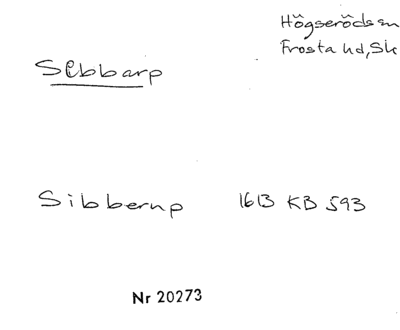 Högseröds sn
Frosta hd, Sk
Sibbarp
Sibberup 1613 KB 593
Nr 20273